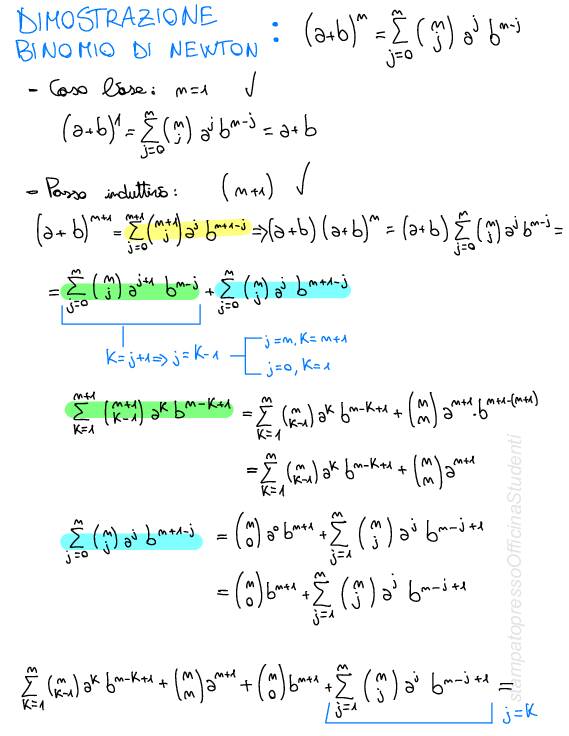 DIMOSTRAZIONE
BINOMIO DI NEWTON : (a+b)^m = ∑_{j=0}^{m} (m j) a^j b^{m-j}
- Caso base: m=1 ✓
(a+b)^1 = ∑_{j=0}^{m} (m j) a^j b^{m-j} = a+b
- Passo induttivo: (m+1) ✓
(a+b)^{m+1} = ∑_{j=0}^{m+1} (m+1 j) a^j b^{m+1-j} ⇒ (a+b)(a+b)^m = (a+b) ∑_{j=0}^{m} (m j) a^j b^{m-j} =
= ∑_{j=0}^{m} (m j) a^{j+1} b^{m-j} + ∑_{j=0}^{m} (m j) a^j b^{m+1-j}
K=j+1 ⇒ j=K-1
j=m, K=m+1
j=0, K=1
∑_{K=1}^{m+1} (m+1 K-1) a^K b^{m-K+1} = ∑_{K=1}^{m} (m K-1) a^K b^{m-K+1} + (m m) a^{m+1} · b^{m+1-(m+1)}
= ∑_{K=1}^{m} (m K-1) a^K b^{m-K+1} + (m m) a^{m+1}
∑_{j=0}^{m} (m j) a^j b^{m+1-j} = (m 0) a^0 b^{m+1} + ∑_{j=1}^{m} (m j) a^j b^{m-j+1}
= (m 0) b^{m+1} + ∑_{j=1}^{m} (m j) a^j b^{m-j+1}
∑_{K=1}^{m} (m K-1) a^K b^{m-K+1} + (m m) a^{m+1} + (m 0) b^{m+1} + ∑_{j=1}^{m} (m j) a^j b^{m-j+1} =
j=K
stampatopressoOfficinaStudenti